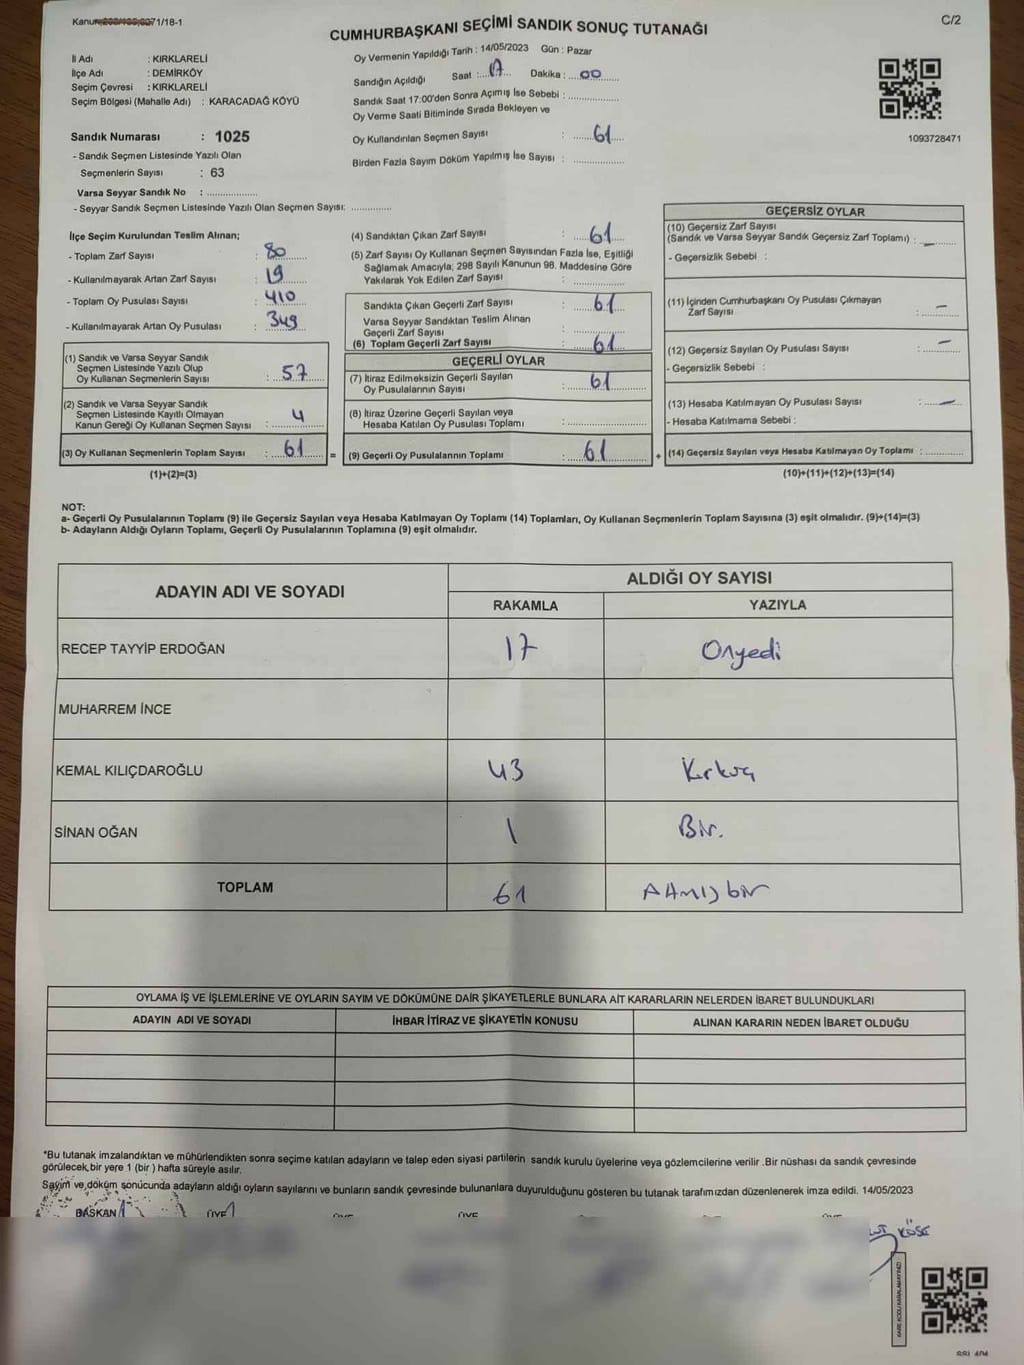 C/2
CUMHURBAŞKANI SEÇİMİ SANDIK SONUÇ TUTANAĞI
İl Adı : KIRKLARELİ
İlçe Adı : DEMİRKÖY
Seçim Çevresi : KIRKLARELİ
Seçim Bölgesi (Mahalle Adı) : KARACADAĞ KÖYÜ
Sandık Numarası : 1025
- Sandık Seçmen Listesinde Yazılı Olan
Seçmenlerin Sayısı : 63
Varsa Seyyar Sandık No : ..................
- Seyyar Sandık Seçmen Listesinde Yazılı Olan Seçmen Sayısı: ..............
Oy Vermenin Yapıldığı Tarih : 14/05/2023 Gün : Pazar
Sandığın Açıldığı Saat : 17 Dakika : 00
Sandık Saat 17:00'den Sonra Açımış İse Sebebi : ..................
Oy Verme Saati Bitiminde Sırada Bekleyen ve
Oy Kullandırılan Seçmen Sayısı : 61
Birden Fazla Sayım Döküm Yapılmış İse Sayısı : ..................
1093728471
İlçe Seçim Kurulundan Teslim Alınan;
- Toplam Zarf Sayısı : 80
- Kullanılmayarak Artan Zarf Sayısı : 19
- Toplam Oy Pusulası Sayısı : 410
- Kullanılmayarak Artan Oy Pusulası : 349
(1) Sandık ve Varsa Seyyar Sandık
Seçmen Listesinde Yazılı Olup
Oy Kullanan Seçmenlerin Sayısı : 57
(2) Sandık ve Varsa Seyyar Sandık
Seçmen Listesinde Kayıtlı Olmayan
Kanun Gereği Oy Kullanan Seçmen Sayısı : 4
(3) Oy Kullanan Seçmenlerin Toplam Sayısı : 61 =
(1)+(2)=(3)
(4) Sandıktan Çıkan Zarf Sayısı : 61
(5) Zarf Sayısı Oy Kullanan Seçmen Sayısından Fazla İse, Eşitliği
Sağlamak Amacıyla; 298 Sayılı Kanunun 98. Maddesine Göre
Yakılarak Yok Edilen Zarf Sayısı : ..................
Sandıkta Çıkan Geçerli Zarf Sayısı : 61
Varsa Seyyar Sandıktan Teslim Alınan
Geçerli Zarf Sayısı : ..................
(6) Toplam Geçerli Zarf Sayısı : 61
GEÇERLİ OYLAR
(7) İtiraz Edilmeksizin Geçerli Sayılan
Oy Pusulalarının Sayısı : 61
(8) İtiraz Üzerine Geçerli Sayılan veya
Hesaba Katılan Oy Pusulası Toplamı : ..................
(9) Geçerli Oy Pusulalarının Toplamı : 61 +
GEÇERSİZ OYLAR
(10) Geçersiz Zarf Sayısı
(Sandık ve Varsa Seyyar Sandık Geçersiz Zarf Toplamı) : –
- Geçersizlik Sebebi :
(11) İçinden Cumhurbaşkanı Oy Pusulası Çıkmayan
Zarf Sayısı : –
(12) Geçersiz Sayılan Oy Pusulası Sayısı : –
- Geçersizlik Sebebi :
(13) Hesaba Katılmayan Oy Pusulası Sayısı : –
- Hesaba Katılmama Sebebi :
(14) Geçersiz Sayılan veya Hesaba Katılmayan Oy Toplamı : ............
(10)+(11)+(12)+(13)=(14)
NOT:
a- Geçerli Oy Pusulalarının Toplamı (9) ile Geçersiz Sayılan veya Hesaba Katılmayan Oy Toplamı (14) Toplamları, Oy Kullanan Seçmenlerin Toplam Sayısına (3) eşit olmalıdır. (9)+(14)=(3)
b- Adayların Aldığı Oyların Toplamı, Geçerli Oy Pusulalarının Toplamına (9) eşit olmalıdır.
ADAYIN ADI VE SOYADI ALDIĞI OY SAYISI
RAKAMLA YAZIYLA
RECEP TAYYİP ERDOĞAN 17 Onyedi
MUHARREM İNCE
KEMAL KILIÇDAROĞLU 43 Kırküç
SİNAN OĞAN 1 Bir.
TOPLAM 61 Atmışbir
OYLAMA İŞ VE İŞLEMLERİNE VE OYLARIN SAYIM VE DÖKÜMÜNE DAİR ŞİKAYETLERLE BUNLARA AİT KARARLARIN NELERDEN İBARET BULUNDUKLARI
ADAYIN ADI VE SOYADI İHBAR İTİRAZ VE ŞİKAYETİN KONUSU ALINAN KARARIN NEDEN İBARET OLDUĞU
*Bu tutanak imzalandıktan ve mühürlendikten sonra seçime katılan adayların ve talep eden siyasi partilerin sandık kurulu üyelerine veya gözlemcilerine verilir .Bir nüshası da sandık çevresinde
görülecek bir yere 1 (bir ) hafta süreyle asılır.
Sayım ve döküm sonucunda adayların aldığı oyların sayılarını ve bunların sandık çevresinde bulunanlara duyurulduğunu gösteren bu tutanak tarafımızdan düzenlenerek imza edildi. 14/05/2023
BAŞKAN ÜYE ÜYE ÜYE ÜYE
KÖSE